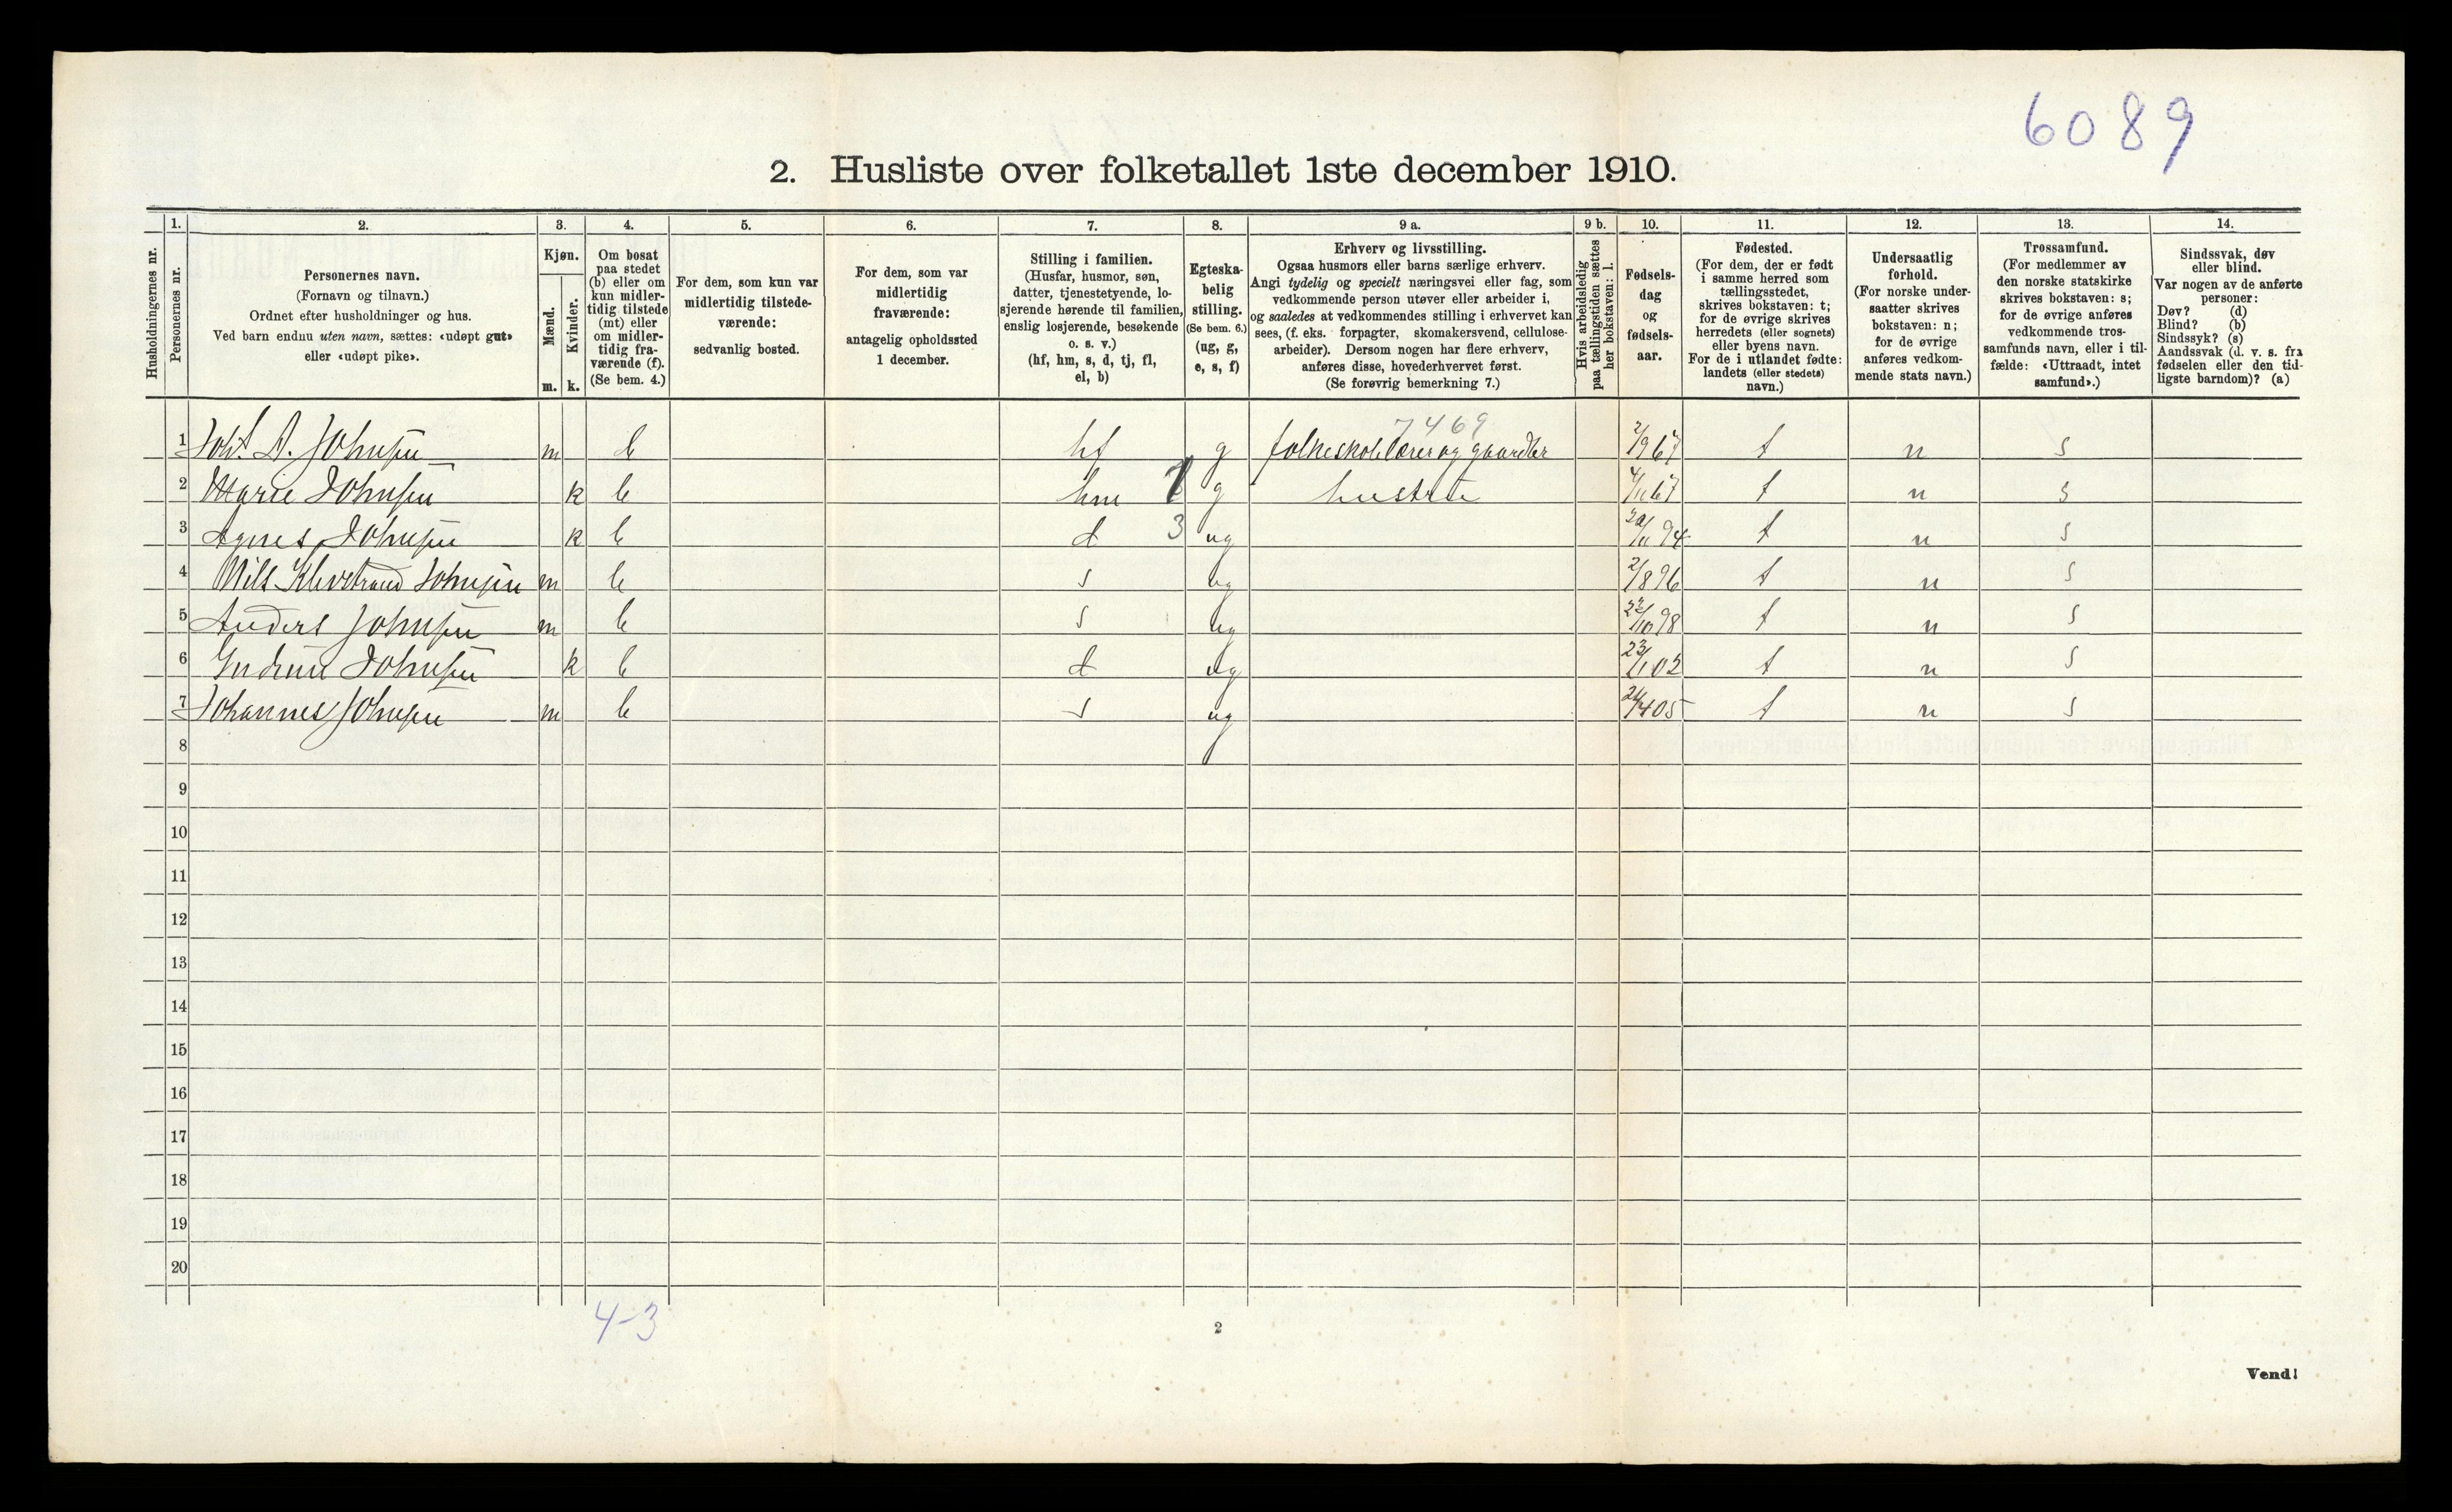 6089
2. Husliste over folketallet 1ste december 1910.
Husholdningernes nr.
1. Personernes nr.
2. Personernes navn.
(Fornavn og tilnavn.)
Ordnet efter husholdninger og hus.
Ved barn endnu uten navn, sættes: «udøpt gut»
eller «udøpt pike».
3. Kjøn.
Mænd. m.
Kvinder. k.
4. Om bosat
paa stedet
(b) eller om
kun midler-
tidig tilstede
(mt) eller
om midler-
tidig fra-
værende (f).
(Se bem. 4.)
5. For dem, som kun var
midlertidig tilstede-
værende:
sedvanlig bosted.
6. For dem, som var
midlertidig
fraværende:
antagelig opholdssted
1 december.
7. Stilling i familien.
(Husfar, husmor, søn,
datter, tjenestetyende, lo-
sjerende hørende til familien,
enslig losjerende, besøkende
o. s. v.)
(hf, hm, s, d, tj, fl,
el, b)
8. Egteska-
belig
stilling.
(Se bem. 6.)
(ug, g,
e, s, f)
9 a. Erhverv og livsstilling.
Ogsaa husmors eller barns særlige erhverv.
Angi tydelig og specielt næringsvei eller fag, som
vedkommende person utøver eller arbeider i,
og saaledes at vedkommendes stilling i erhvervet kan
sees, (f. eks. forpagter, skomakersvend, cellulose-
arbeider). Dersom nogen har flere erhverv,
anføres disse, hovederhvervet først.
(Se forøvrig bemerkning 7.)
9 b. Hvis arbeidsledig
paa tællingstiden sættes
her bokstaven: l.
10. Fødsels-
dag
og
fødsels-
aar.
11. Fødested.
(For dem, der er født
i samme herred som
tællingsstedet,
skrives bokstaven: t;
for de øvrige skrives
herredets (eller sognets)
eller byens navn.
For de i utlandet fødte:
landets (eller stedets)
navn.)
12. Undersaatlig
forhold.
(For norske under-
saatter skrives
bokstaven: n;
for de øvrige
anføres vedkom-
mende stats navn.)
13. Trossamfund.
(For medlemmer av
den norske statskirke
skrives bokstaven: s;
for de øvrige anføres
vedkommende tros-
samfunds navn, eller i til-
fælde: «Uttraadt, intet
samfund».)
14. Sindssvak, døv
eller blind.
Var nogen av de anførte
personer:
Døv? (d)
Blind? (b)
Sindssyk? (s)
Aandssvak (d. v. s. fra
fødselen eller den tid-
ligste barndom)? (a)
7469
1 Joh. A. Johnsen m b hf g folkeskolelærer og gaardbr 2/9 67 t n s
2 Marie Johnsen k b hm g hustru 4/11 67 t n s
3 Agnes Johnsen k b d 3 ug 20/11 94 t n s
4 Nils Klevstrand Johnsen m b s ug 2/8 96 t n s
5 Anders Johnsen m b s ug 22/10 98 t n s
6 Gudrun Johnsen k b d ug 23/1 02 t n s
7 Johannes Johnsen m b s ug 24/4 05 t n s
8
9
10
11
12
13
14
15
16
17
18
19
20
4-3
2
Vend!